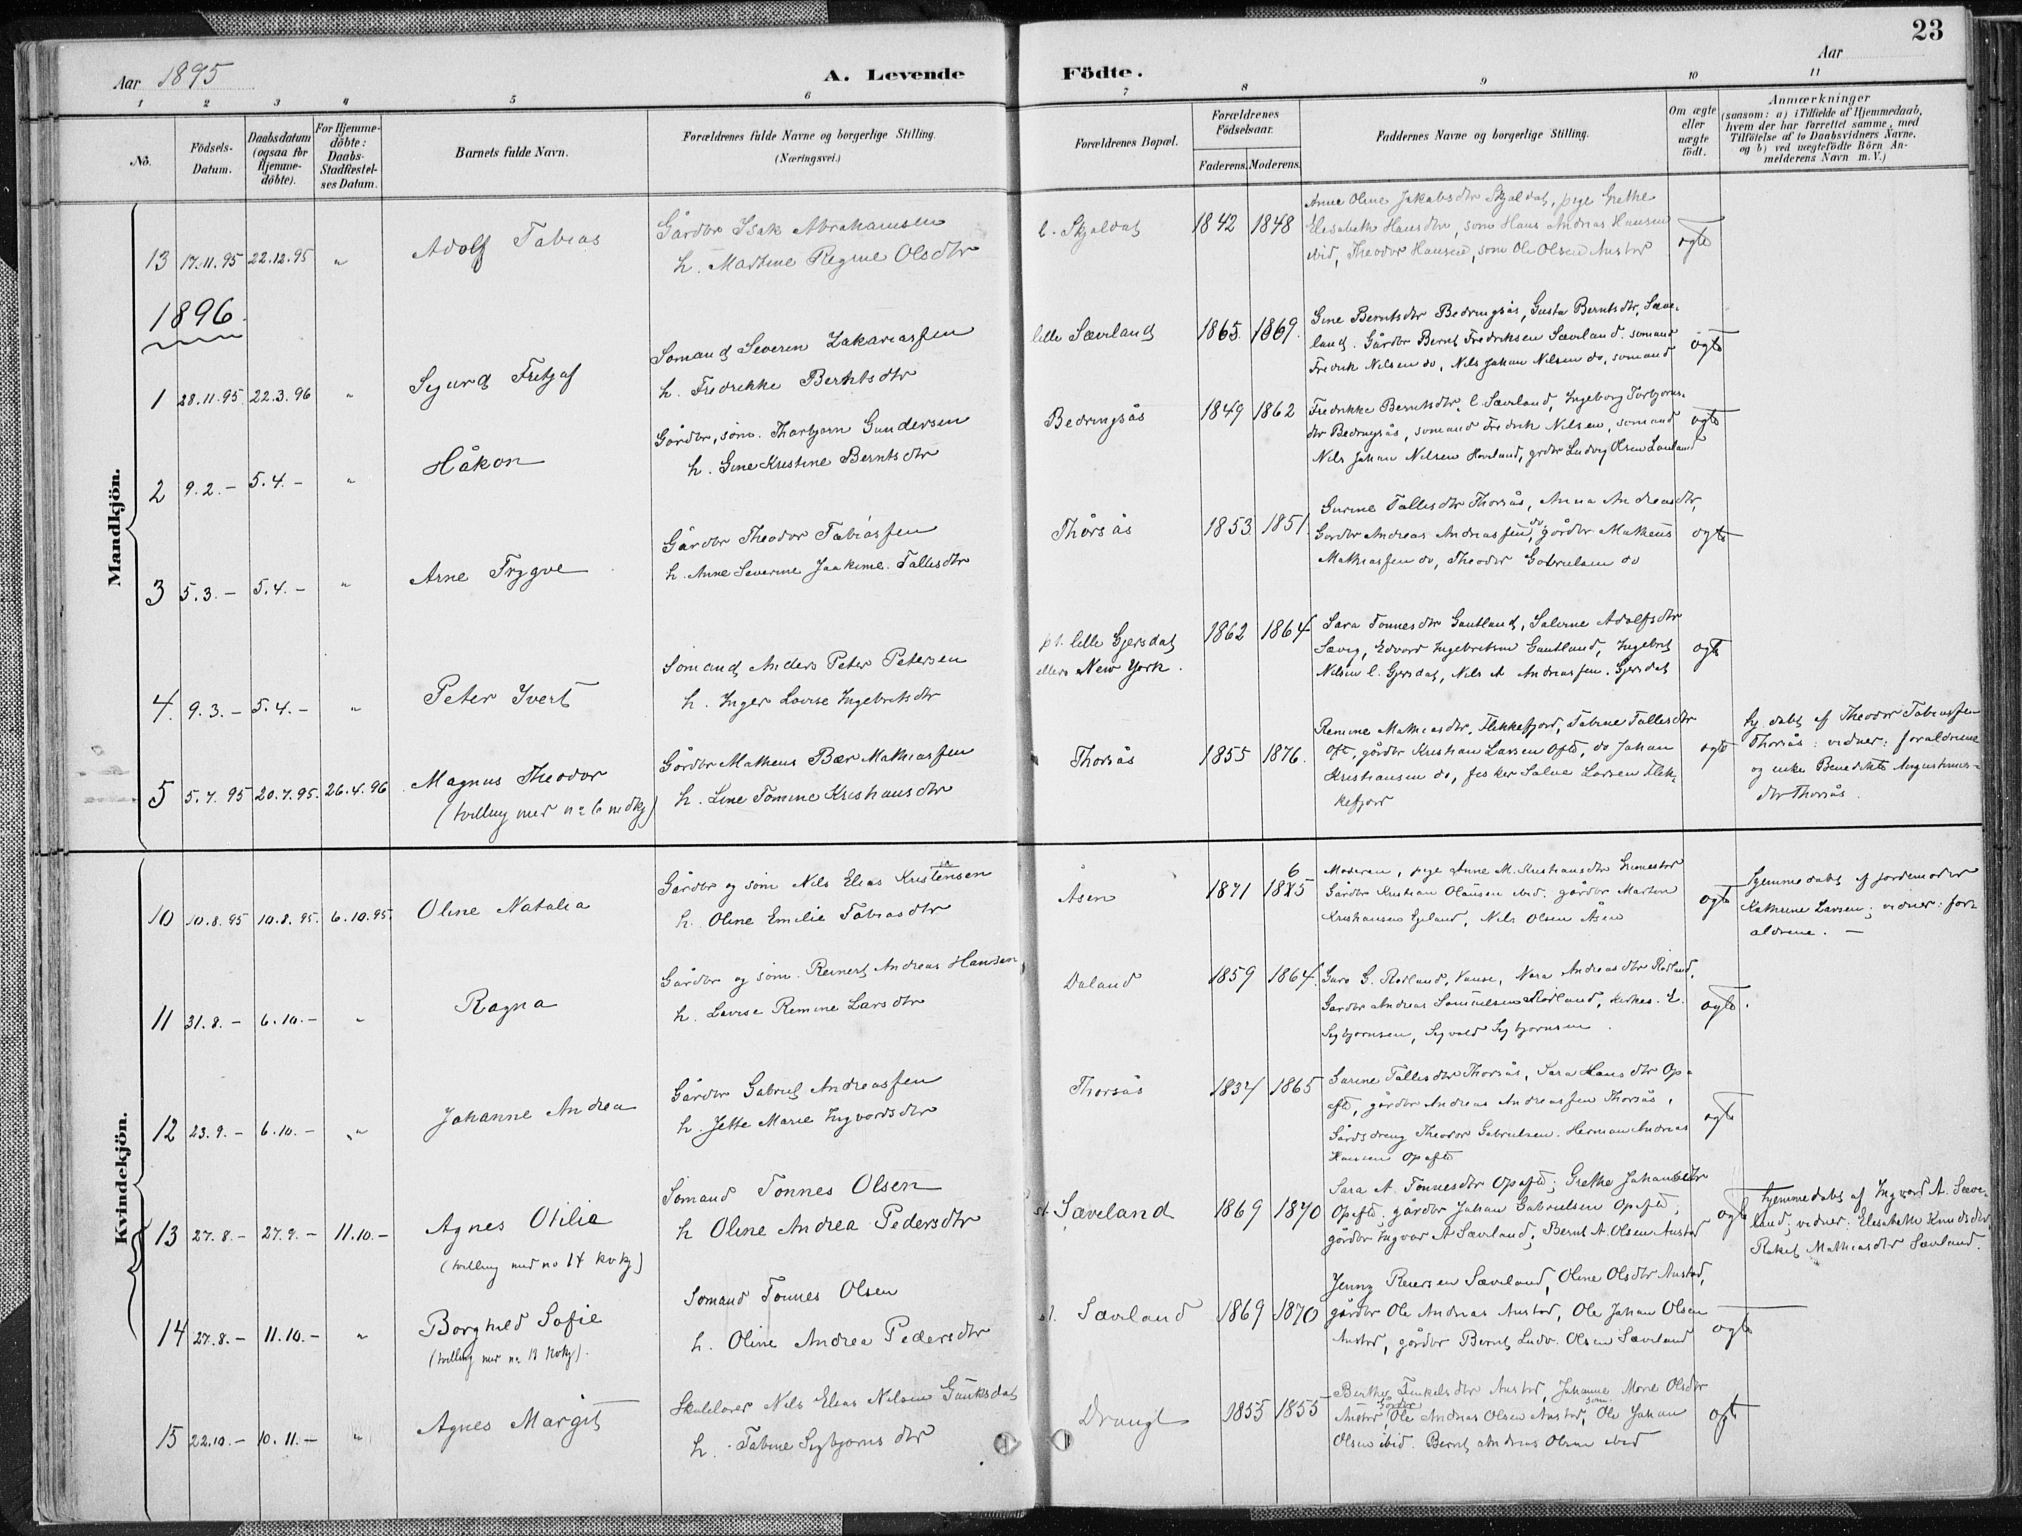 23
Aar 1895
A. Levende Födte.
Aar
1 2 3 4 5 6 7 8 9 10 11
Nò.
Födsels-Datum.
Daabsdatum (ogsaa for Hjemme-döbte).
For Hjemme-döbte: Daabs-Stadfæstel-ses Datum.
Barnets fulde Navn.
Forældrenes fulde Navne og borgerlige Stilling. (Næringsvei.)
Forældrenes Bopæl.
Forældrenes Födselsaar.
Faderens. Moderens.
Faddernes Navne og borgerlige Stilling.
Om ægte eller uægte födt.
Anmærkninger (saasom: a) i Tilfælde af Hjemmedaab, hvem der har forrettet samme, med Tilföielse af to Daabsvidners Navne, og b) ved uægtefödte Börn Anmelderens Navn m. V.)
Mandkjön.
13 17.11.95 22.12.95 " Adolf Tobias
Gårdbr Isak Abrahamsen
h. Martine Regine Olsdtr
l. Skjeldal 1842 1848
Anne Oline Jakobsdtr Skjeldal, pige Grethe
Elisabeth Hansdtr, søm Hans Andreas Hansen
ibid, Theodor Hansen, søm Ole Olsen Austad
ægte
1896
1 28.11.95 22.3.96 " Sigurd Fritjof
Sømand Severin Zakariassen
h. Fredrikke Berntsdtr
lille Sæveland 1865 1869
Gine Berntsdtr Bedringsås, Gusta Berntsdtr Sæve-
land. Gårdbr Bernt Fredriksen Sæveland. sømand
Fredrik Nilsen do, Nils Johan Nilsen do, sømand
ægte
2 9.2.- 5.4.- " Håkon
Gårdbr, søm. Thorbjørn Gundersen
h. Gine Kristine Berntsdtr
Bedringsås 1849 1862
Fredrikke Berntsdtr l. Sæveland, Ingeborg Torbjørns-
dtr Bedringsås, sømand Fredrik Nilsen, sømand
Nils Johan Nilsen Haveland, grdbr Ludvig Olsen
ægte
3 5.3.- 5.4.- " Arne Trygve
Gårdbr Theodor Tobiassen
h. Anne Severine Joakime Tallesdtr
Thorsås 1853 1851
Gurine Tallesdtr Thorsås, Anna Andreasdtr,
Gardbr Andreas Andreassen do, gårdbr Matheus
Mathiassen do, Theodor Gabrielsen do
ægte
4. 9.3.- 5.4.- " Peter Ivert
Sømand Anders Peter Petersen
h. Inger Lovise Ingebretsdtr
pt. lille Gjersdal
ellers New York. 1862 1864
Sara Tønnesdtr Gautland, Salerne Adolfsdtr
Sævig, Edvard Ingebretsen Gautland, Ingebret
Nilsen l. Gjersdal, Nils A Andreassen. Gjersdal
ægte
5 5.7.95 20.7.95 26.4.96 Magnus Theodor
(tvilling med no 6 mdkj)
Gårdbr Matheus Bær Mathiassen
h. Line Tomine Kristiansdtr
Thorsås 1855 1876.
Remine Mathiasdtr Flekkefjord, Tobine Tallesdtr
Ofte, gårdbr Kristian Larsen Ofte, do Johan
Kristiansen do, fisker Salve Larsen Flek-
kefjord
ægte
hj. døbt af Theodor Tobiassen
Thorsås: vidner: forældrene
og enke Benedikte Augustinus-
dtr Thorsås.
Kvindekjön.
10 10.8.95 10.8.95. 6.10.95. Oline Natalia
Gårdbr og søm Nils Elias Kristensen
h. Oline Emilie Tobiasdtr
Åsen 1871 1865
Moderen, pige Anne M. Kristiansdtr
Gårdbr Kristian Olausen ibid. gårdbr Martin
Kristiansen Egeland, Nils Olsen Åsen
ægte
hjemmedøbt af jordemoder
Kathrine Larsen; vidner: for-
ældrene. -
11 31.8.- 6.10.- " Ragna
Gårdbr og søm. Reinert Andreas Hansen
h. Lovise Remine Larsdtr
Daland 1859 1864.
Guro G. Rødland, Vanse, Nora Andreasdtr Rødland,
Gardbr Andreas Samuelsen Rødland, kirkes. E.
Sigbjørnsen, Sigvald Sigbjørnsen.
ægte.
12 23.9.- 6.10.- " Johanne Andrea
Gårdbr Gabriel Andreassen
h. Jette Marie Ingvordsdtr
Thorsås 1834 1865
Gurine Tallesdtr Thorsås, Sara Hansdtr Op-
ofte, gårdbr Andreas Andreassen Thorsås,
Gårdsdreng Theodor Gabrielsen. Herman Andreas
Hansen Opofte
ægte
13 27.8.- 27.9.- 11.10.- Agnes Otilie
(tvilling med no 14 kvkj)
Sømand Tønnes Olsen
h Oline Andrea Pedersdtr
st. Sæveland 1869 1870
Sara A. Tønnesdtr Opofte; Grethe Johansdtr
Opofte; gårdbr Johan Gabrielsen Opofte;
gårdbr Ingvar A Sæveland; Bernt A. Olsen Austad
ægte
hjemmedøbt af Ingvard A. Sæve-
land; vidner: Elisabeth Knudsdtr,
Rakel Mathiasdtr Sæveland.
14 27.8.- 11.10.- " Borghild Sofie
(tvilling med no 13 kvkj).
Sømand Tønnes Olsen
h. Oline Andrea Pedersdtr
st. Sæveland 1869 1870
Jenny Reiersen Sæveland, Oline Olsdtr Austad,
gårdbr Ole Andreas Austad, Ole Johan Olsen
Austad, gårdbr Bernt Ludv. Olsen Sæveland
ægte
15 22.10.- 10.11.- " Agnes Margit
Skolelærer Nils Elias Nilsen Gauksdal
h. Tobine Sigbjørnsdtr
Drangl 1855 1855
Berthe Tinkelsdtr Austad, Johanne Marie Olsdtr
Austad, gårdbr Ole Andreas Olsen Austad, søm. Ole Johan
Olsen ibid. Bernt Andreas Olsen ibid
ægt